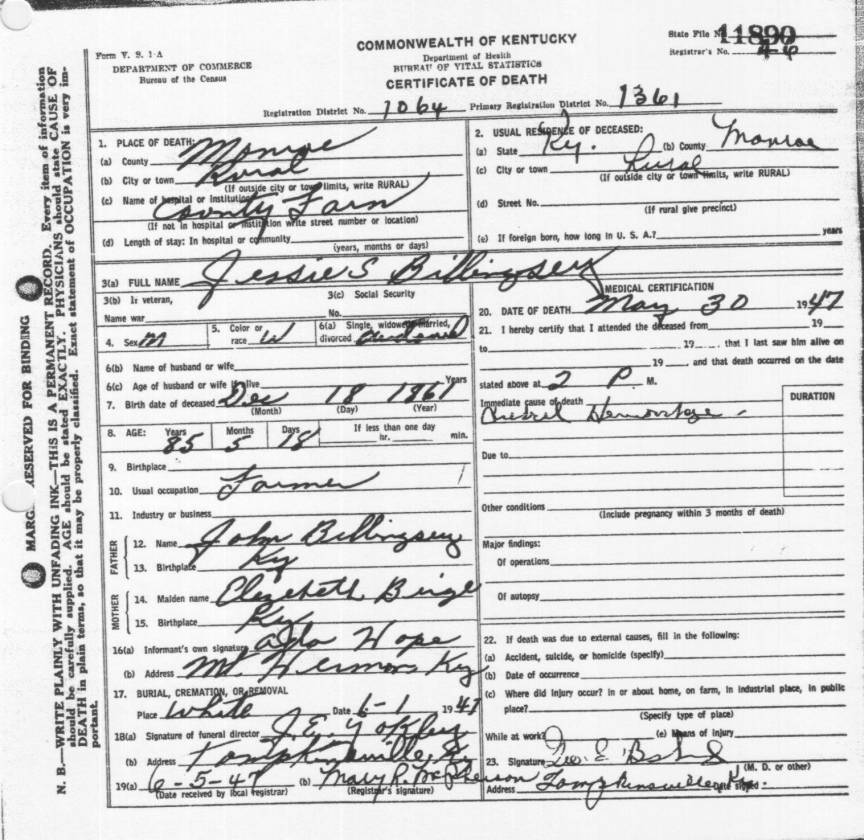 COMMONWEALTH OF KENTUCKY
Department of Health
BUREAU OF VITAL STATISTICS
CERTIFICATE OF DEATH
Form V. S. 1-A
DEPARTMENT OF COMMERCE
Bureau of the Census
State File No. 11890
Registrar's No. 46
Registration District No. 1064 Primary Registration District No. 1361
MARGIN RESERVED FOR BINDING
N. B.—WRITE PLAINLY WITH UNFADING INK—THIS IS A PERMANENT RECORD. Every item of information
should be carefully supplied. AGE should be stated EXACTLY. PHYSICIANS should state CAUSE OF
DEATH in plain terms, so that it may be properly classified. Exact statement of OCCUPATION is very im-
portant.
1. PLACE OF DEATH:
(a) County Monroe
(b) City or town Rural
(If outside city or town limits, write RURAL)
(c) Name of hospital or institution County Farm
(If not in hospital or institution write street number or location)
(d) Length of stay: In hospital or community
(years, months or days)
2. USUAL RESIDENCE OF DECEASED:
(a) State Ky. (b) County Monroe
(c) City or town Rural
(If outside city or town limits, write RURAL)
(d) Street No.
(If rural give precinct)
(e) If foreign born, how long in U. S. A.? years
3(a) FULL NAME Jessie S Billingsey
3(b) If veteran,
Name war
3(c) Social Security
No.
4. Sex M
5. Color or
race W
6(a) Single, widowed, married,
divorced
6(b) Name of husband or wife
6(c) Age of husband or wife if alive Years
7. Birth date of deceased Dec 18 1861
(Month) (Day) (Year)
8. AGE: Years Months Days If less than one day
85 5 18 hr. min.
9. Birthplace
10. Usual occupation Farmer
11. Industry or business
FATHER
12. Name John Billingsey
13. Birthplace Ky
MOTHER
14. Maiden name Elizebeth Birge
15. Birthplace Ky
16(a) Informant's own signature Hope
(b) Address Mt. Hermon Ky
17. BURIAL, CREMATION, OR REMOVAL
Place White Date 6-1 1947
18(a) Signature of funeral director J.E. Yokley
(b) Address Tompkinsville, Ky
19(a) 6-5-47 (b) Mary R. McPherson
(Date received by local registrar) (Registrar's signature)
MEDICAL CERTIFICATION
20. DATE OF DEATH May 30 1947
21. I hereby certify that I attended the deceased from 19
to 19 that I last saw him alive on
19 and that death occurred on the date
stated above at 2 P M.
Immediate cause of death
Hemorrhage
DURATION
Due to
Other conditions
(Include pregnancy within 3 months of death)
Major findings:
Of operations
Of autopsy
22. If death was due to external causes, fill in the following:
(a) Accident, suicide, or homicide (specify)
(b) Date of occurrence
(c) Where did injury occur? in or about home, on farm, in industrial place, in public
place?
(Specify type of place)
While at work? (e) Means of injury
23. Signature
(M. D. or other)
Address Tompkinsville Ky. Date signed